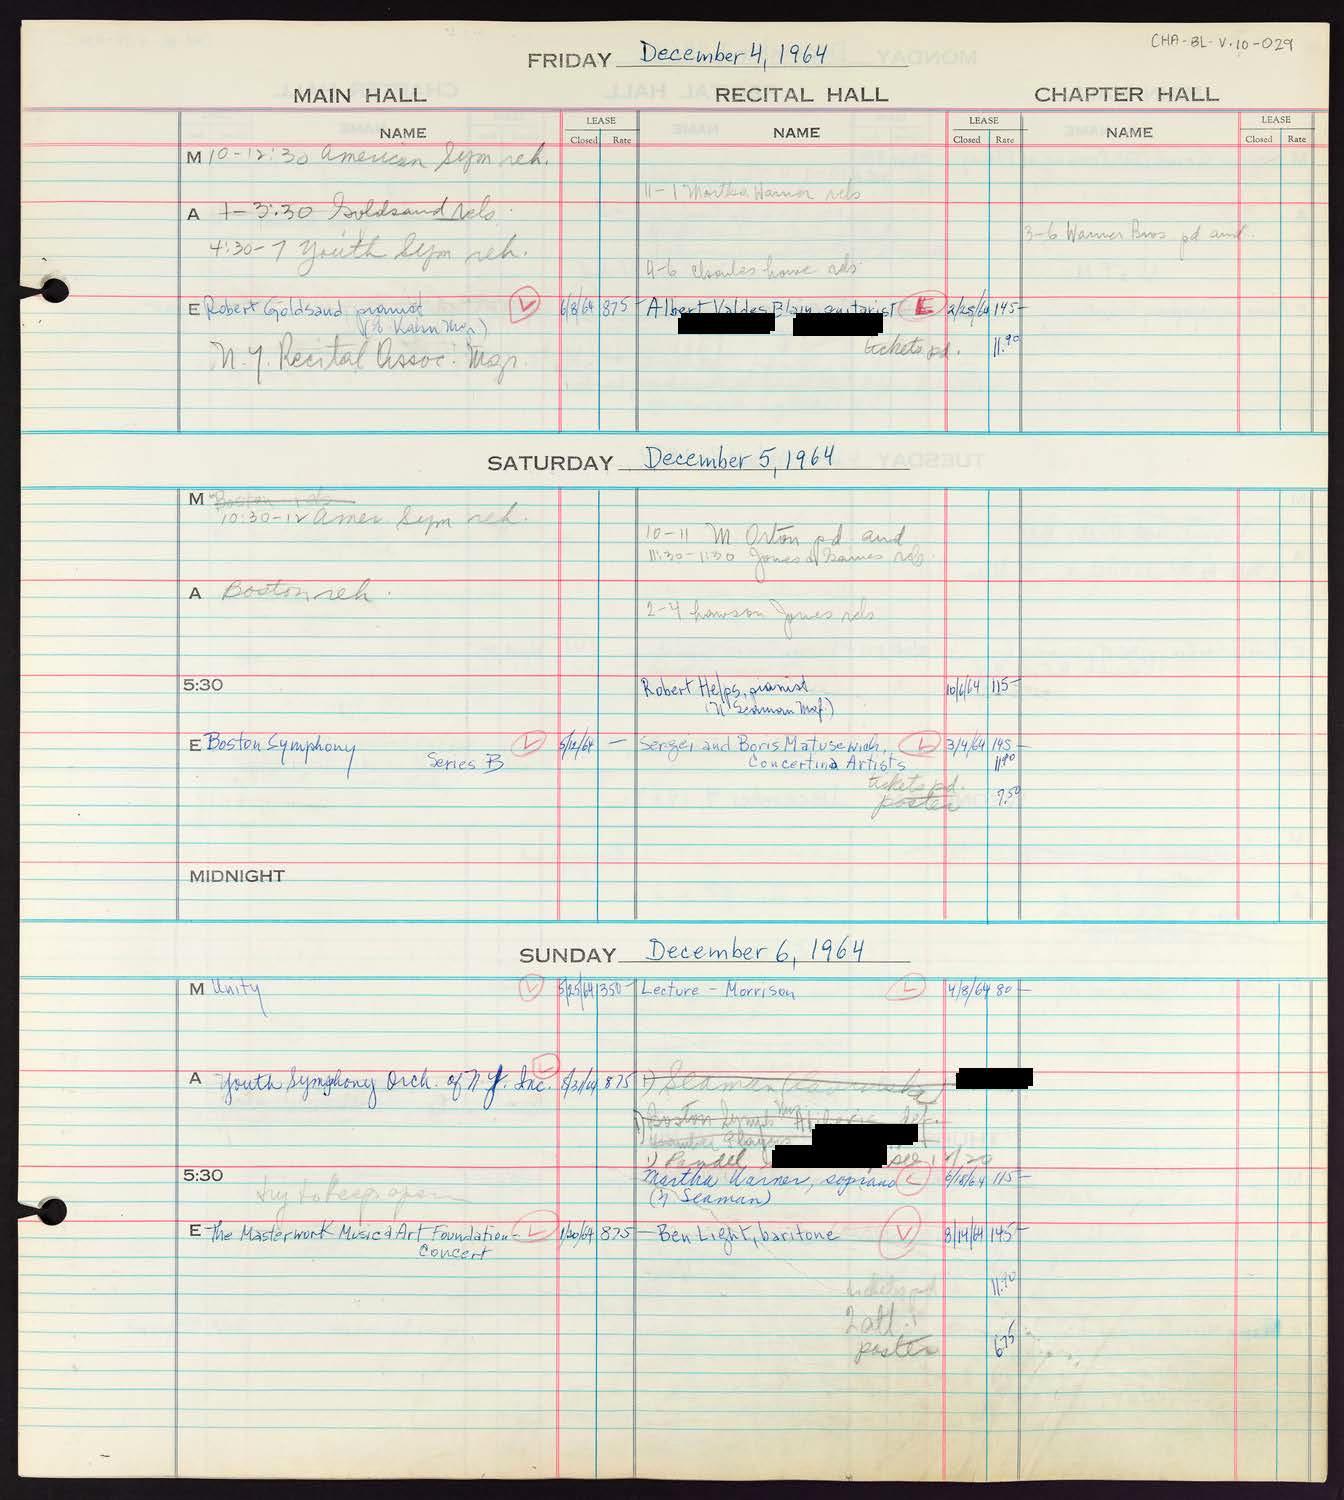 CHA-BL-V.10-029
FRIDAY December 4, 1964
MAIN HALL RECITAL HALL CHAPTER HALL
NAME LEASE Closed Rate NAME LEASE Closed Rate NAME LEASE Closed Rate
M 10-12:30 American Sym reh.
11-1 Martha Warner rels
A 1-3:30 Goldsand rels.
3-6 Warner Bros pd aud.
4:30-7 Youth Sym reh.
4-6 house rels
E Robert Goldsand pianist L 6/8/64 875- Albert Valdes Blain guitarist L 2/25/64 145-
(% Kahn Mgr.)
N.Y. Recital Assoc. Mgr. tickets pd. 11.90
SATURDAY December 5, 1964
M Boston rels
10:30-12 Amer Sym reh.
10-11 M Orton pd aud
11:30-1:30 Jones & Gaines rels.
A Boston reh.
2-4 Lawson Jones rels
5:30 Robert Helps, pianist 10/6/64 115-
(N Seaman Mgt.)
E Boston Symphony L 5/12/64 - Sergei and Boris Matusewich, L 3/9/64 145-
Series B Concertina Artists 11.90
tickets pd.
poster 7.50
MIDNIGHT
SUNDAY December 6, 1964
M Unity L 5/25/64 350- Lecture - Morrison L 4/8/64 80-
A Youth Symphony Orch. of N.Y. Inc. L 8/31/64 875 1) Seaman
1) Boston Symp
Chamber Players
1) Randel
5:30 try to keep open Martha Warner, soprano L 6/18/64 115-
(N Seaman)
E The Masterwork Music & Art Foundation- L 1/20/64 875 - Ben Light, baritone L 8/14/64 145-
Concert
tickets pd 11.90
2 all.
poster 6.75